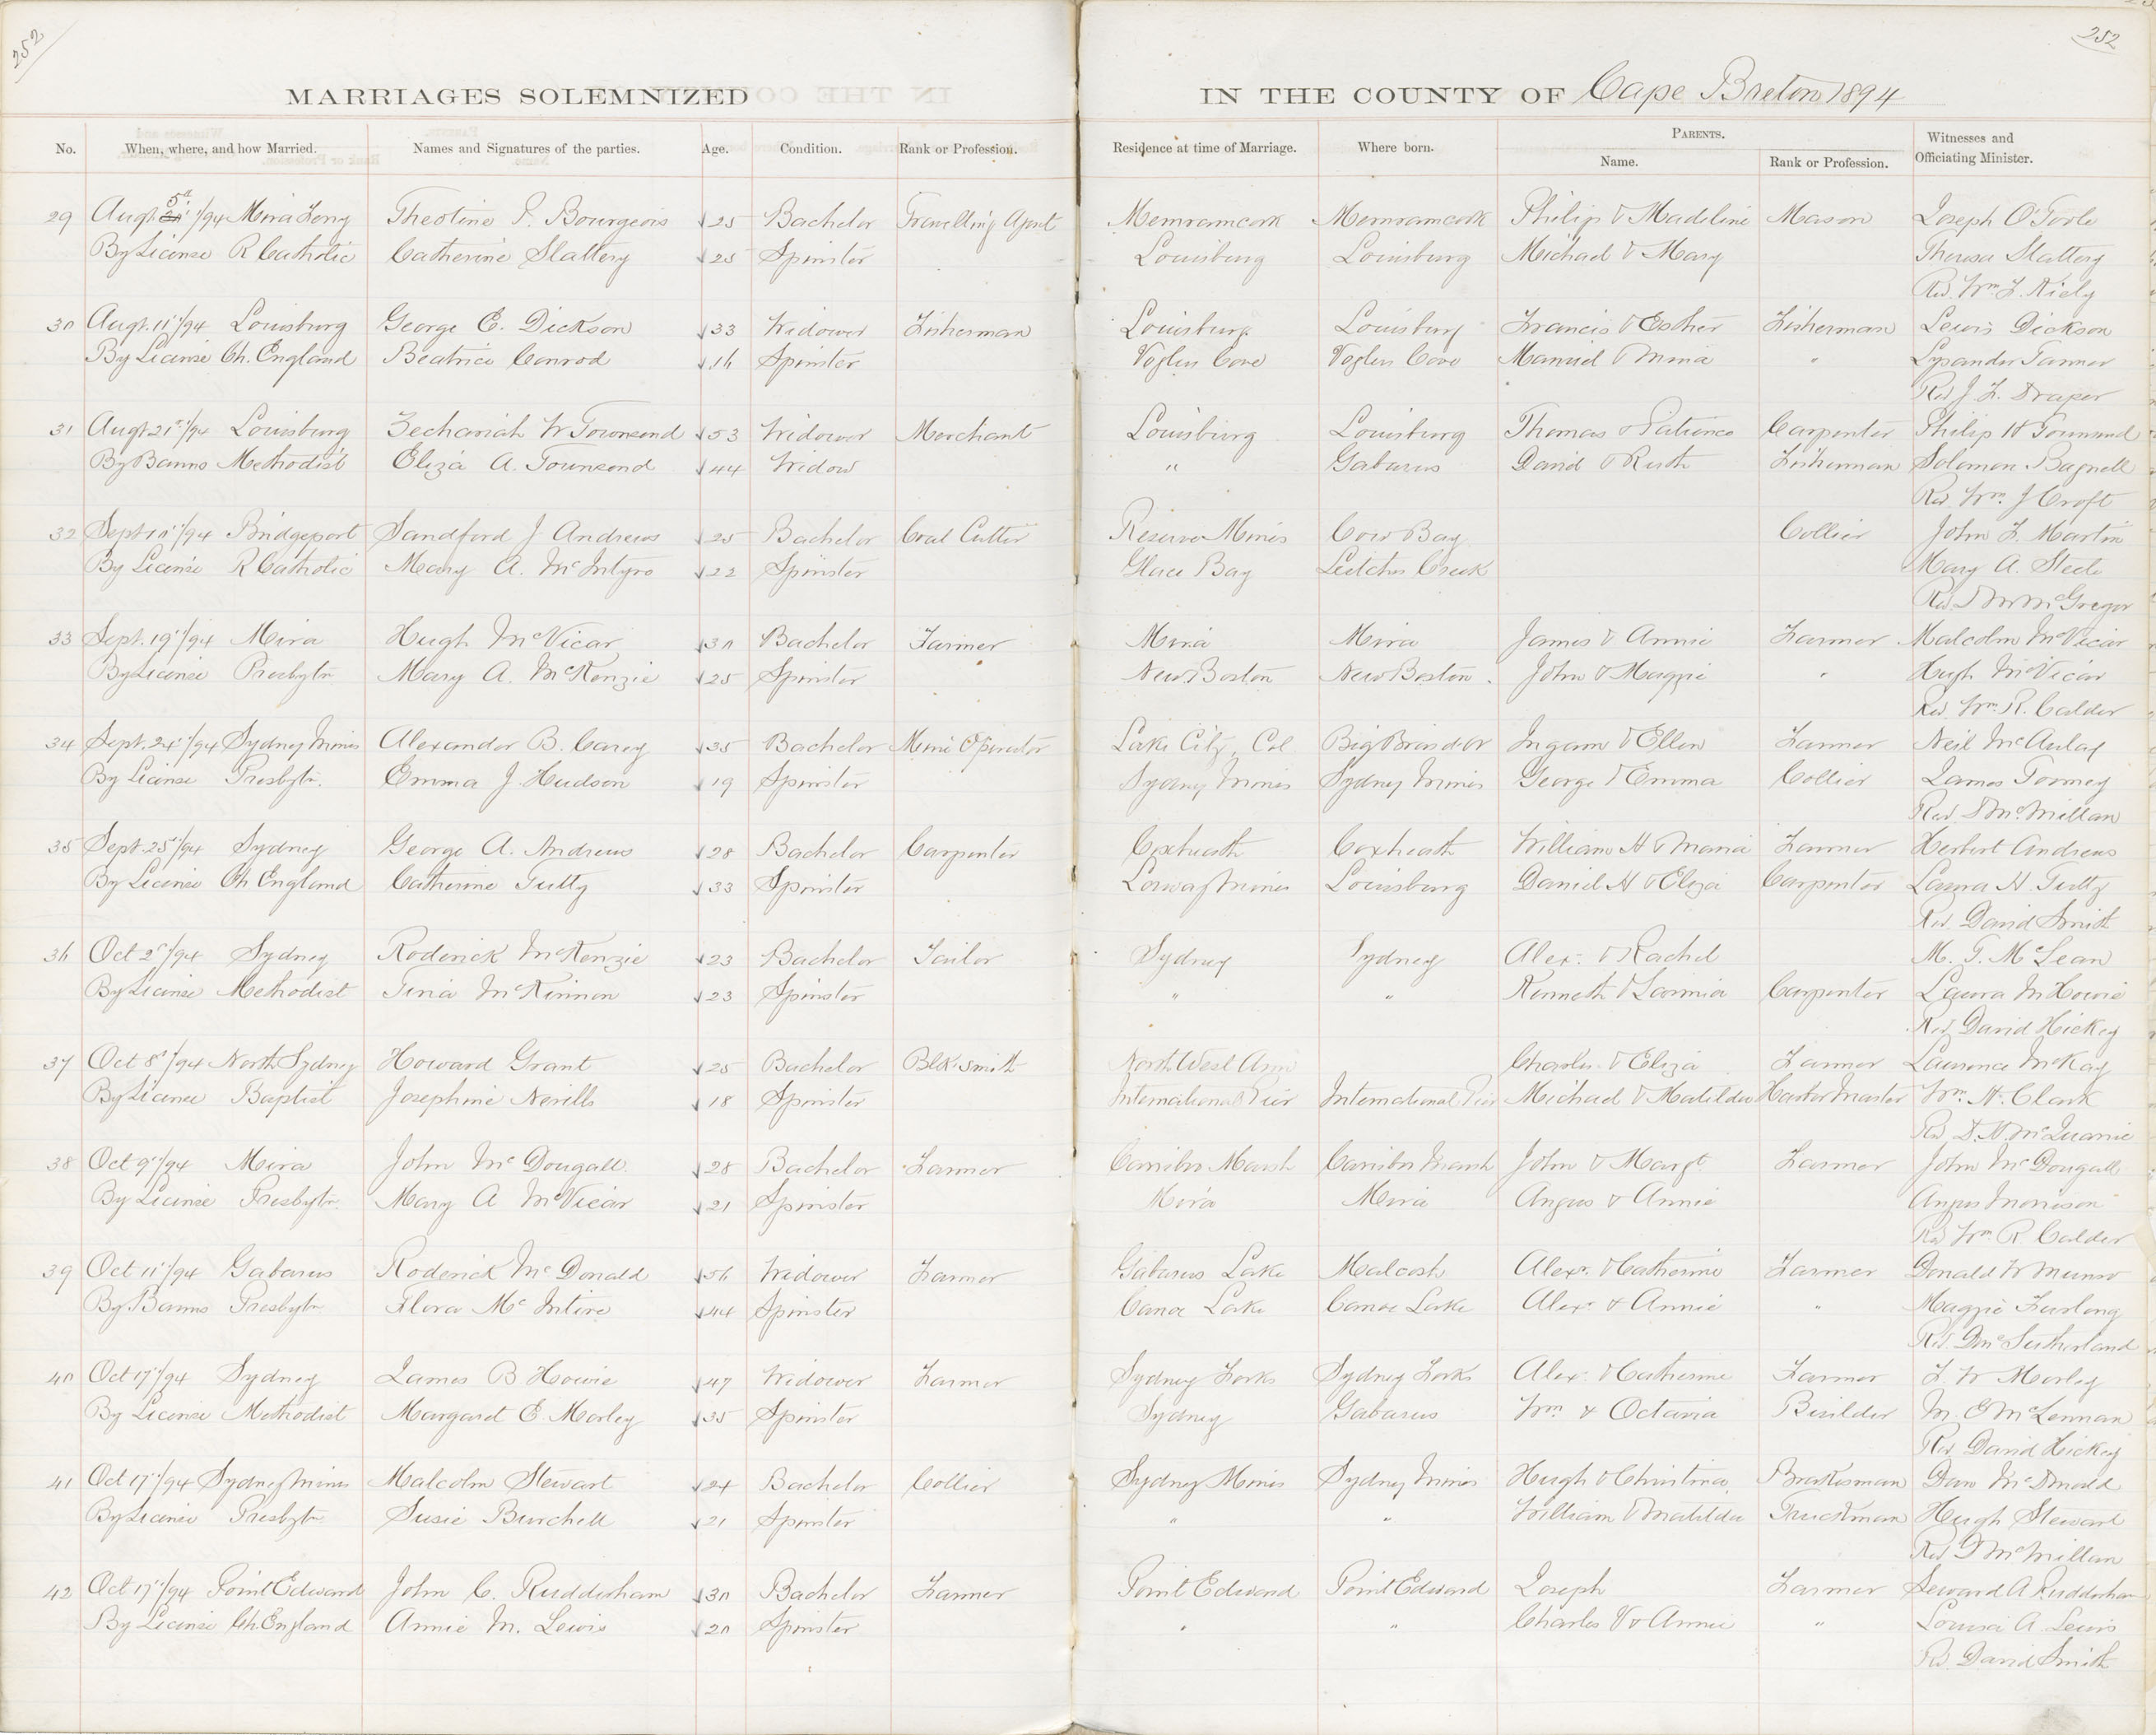 252
252
MARRIAGES SOLEMNIZED IN THE COUNTY OF Cape Breton 1894
No. When, where, and how Married. Names and Signatures of the parties. Age. Condition. Rank or Profession. Residence at time of Marriage. Where born. PARENTS. Name. Rank or Profession. Witnesses and Officiating Minister.
29 Augt 5"/94 Mira Ferry Theotine P. Bourgeois 25 Bachelor Travelling Agent Memramcook Memramcook Philip & Madeline Mason Joseph O'Toole
By License R Catholic Catherine Slattery 25 Spinster Louisburg Louisburg Michael & Mary Theresa Slattery
Rev. Wm F. Kiely
30 Augt. 11"/94 Louisburg George E. Dickson 33 Widower Fisherman Louisburg Louisburg Francis & Esther Fisherman Lewis Dickson
By License Ch. England Beatrice Conrod 16 Spinster Voglers Cove Voglers Cove Manuel & Mina " Lysander Tanner
Rev J. F. Draper
31 Augt 21st/94 Louisburg Zechariah W Townsend 53 Widower Merchant Louisburg Louisburg Thomas & Patience Carpenter Philip W Townsend
By Banns Methodist Eliza A. Townsend 44 Widow " Gabarus David & Ruth Fisherman Solomon Bagnell
Rev. Wm J Croft
32 Sept 10"/94 Bridgeport Sandford J Andrews 25 Bachelor Coal Cutter Reserve Mines Cow Bay Collier John F. Martin
By License R Catholic Mary A. McIntyre 22 Spinster Glace Bay Leitches Creek Mary A. Steele
Rev. McGregor
33 Sept. 19"/94 Mira Hugh McVicar 30 Bachelor Farmer Mira Mira James & Annie Farmer Malcolm McVicar
By License Presbytn Mary A. McKenzie 25 Spinster New Boston New Boston. John & Maggie " Hugh McVicar
Rev. Wm. R. Calder
34 Sept. 24"/94 Sydney Mines Alexander B. Carey 35 Bachelor Mine Operator Lake City, Col Big Bras d'Or Ingam & Ellen Farmer Neil McAulay
By License Presbytn. Emma J. Hudson 19 Spinster Sydney Mines Sydney Mines George & Emma Collier James Toomey
Rev. D McMillan
35 Sept. 25"/94 Sydney George A. Andrews 28 Bachelor Carpenter Coxheath Coxheath William H & Maria Farmer Herbert Andrews
By License Ch England Catherine Tutty 33 Spinster Lorway Mines Louisburg Daniel H & Eliza Carpenter Laura H. Tutty
Rev. David Smith
36 Oct 2"/94 Sydney Roderick McKenzie 23 Bachelor Tailor Sydney Sydney Alex. & Rachel M. T. McLean
By License Methodist Tina McKinnon 23 Spinster " " Kenneth & Carpenter Laura M Howie
Rev. David Hickey
37 Oct 8"/94 North Sydney Howard Grant 25 Bachelor Blk. smith North West Arm Charles & Eliza Farmer Lawrence McKay
By License Baptist Josephine Nevills 18 Spinster International Pier International Pier Michael & Matilda Harbor Master Wm. N. Clark
Rev D. N. McQuarrie
38 Oct 9"/94 Mira John McDougall 28 Bachelor Farmer Caribou Marsh Caribou Marsh John & Margt. Farmer John McDougall
By License Presbytn. Mary A McVicar 21 Spinster Mira Mira Angus & Annie Angus Morrison
Rev Wm R Calder
39 Oct 11"/94 Gabarus Roderick McDonald 56 Widower Farmer Gabarus Lake Alexr. & Catherine Farmer Donald W Munro
By Banns Presbytn Flora McIntire 44 Spinster Canoe Lake Canoe Lake Alexr & Annie " Maggie Furlong
Rev. Sutherland
40 Oct 17"/94 Sydney James B Howie 47 Widower Farmer Sydney Forks Sydney Forks Alex. & Catherine Farmer F. W Morley
By License Methodist Margaret E. Morley 35 Spinster Sydney Gabarus Wm & Octavia Builder M. E McLennan
Rev David Hickey
41 Oct 17"/94 Sydney Mines Malcolm Stewart 24 Bachelor Collier Sydney Mines Sydney Mines Hugh & Christina Brakesman Dan McDonald
By License Presbytn Susie Burchell 21 Spinster " " William & Matilda Truckman Hugh Stewart
Rev D McMillan
42 Oct 17"/94 Point Edward John C. Rudderham 30 Bachelor Farmer Point Edward Point Edward Joseph Farmer Seward A Rudderham
By License Ch. England Annie M. Lewis 20 Spinster " " Charles V & Annie " Louisa A. Lewis
Rev. David Smith